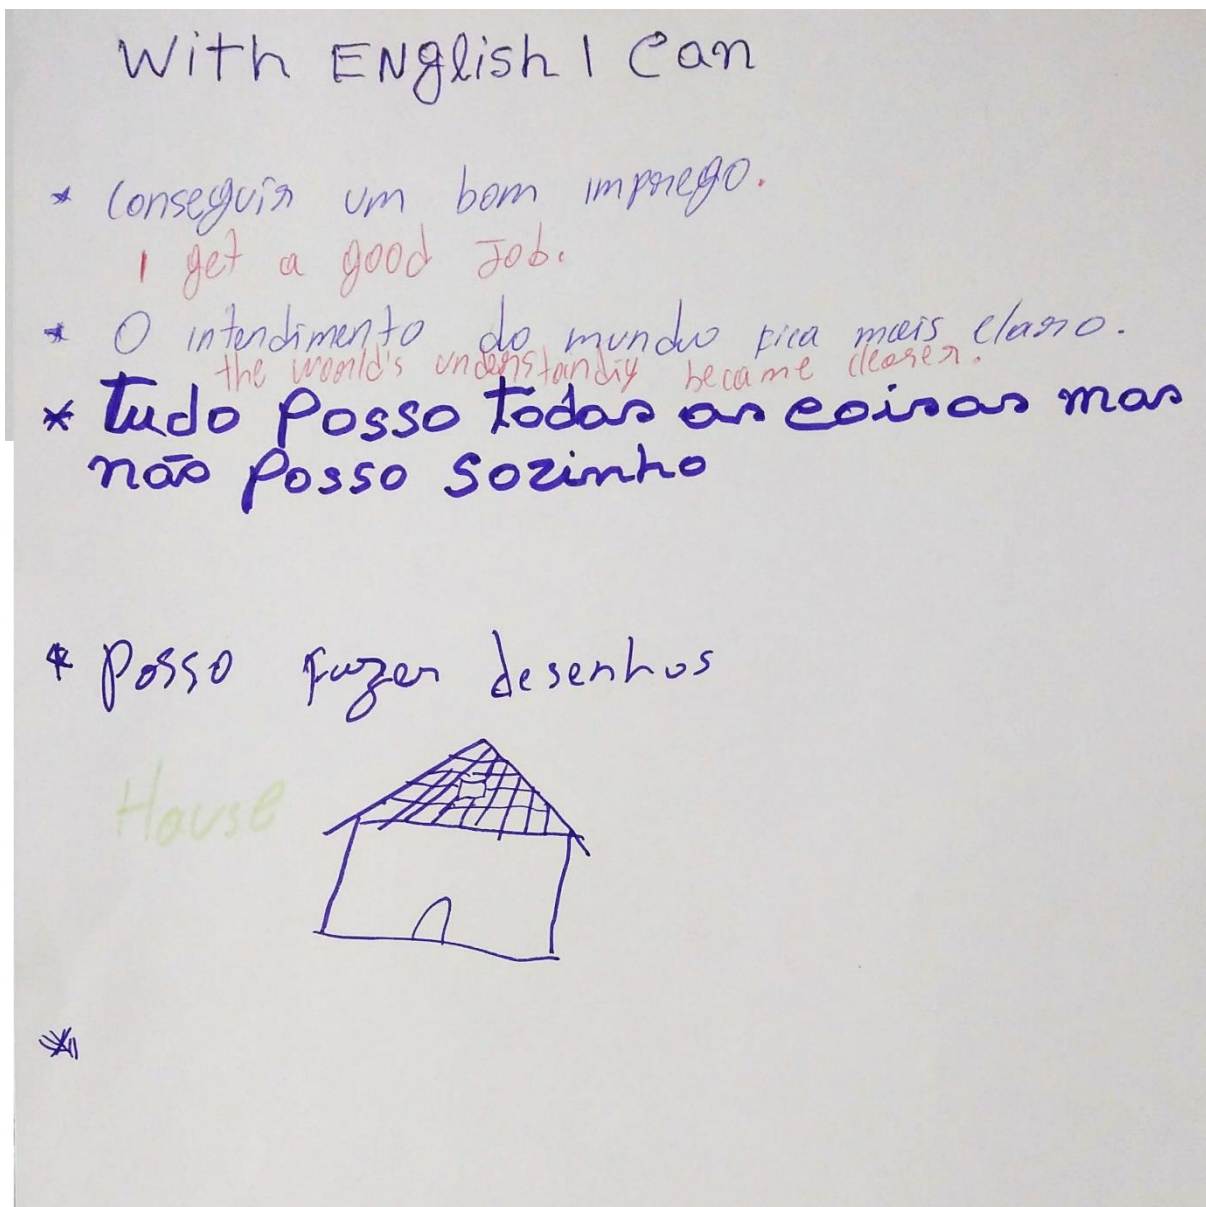 With ENglish I Can
* Conseguir um bom imprego.
I get a good Job.
* O intendimento do mundo fica mais claro.
the world's understandiy became clearer.
* Tudo Posso todas as coisas mas
não Posso sozinho
* Posso fazer desenhos
House
*